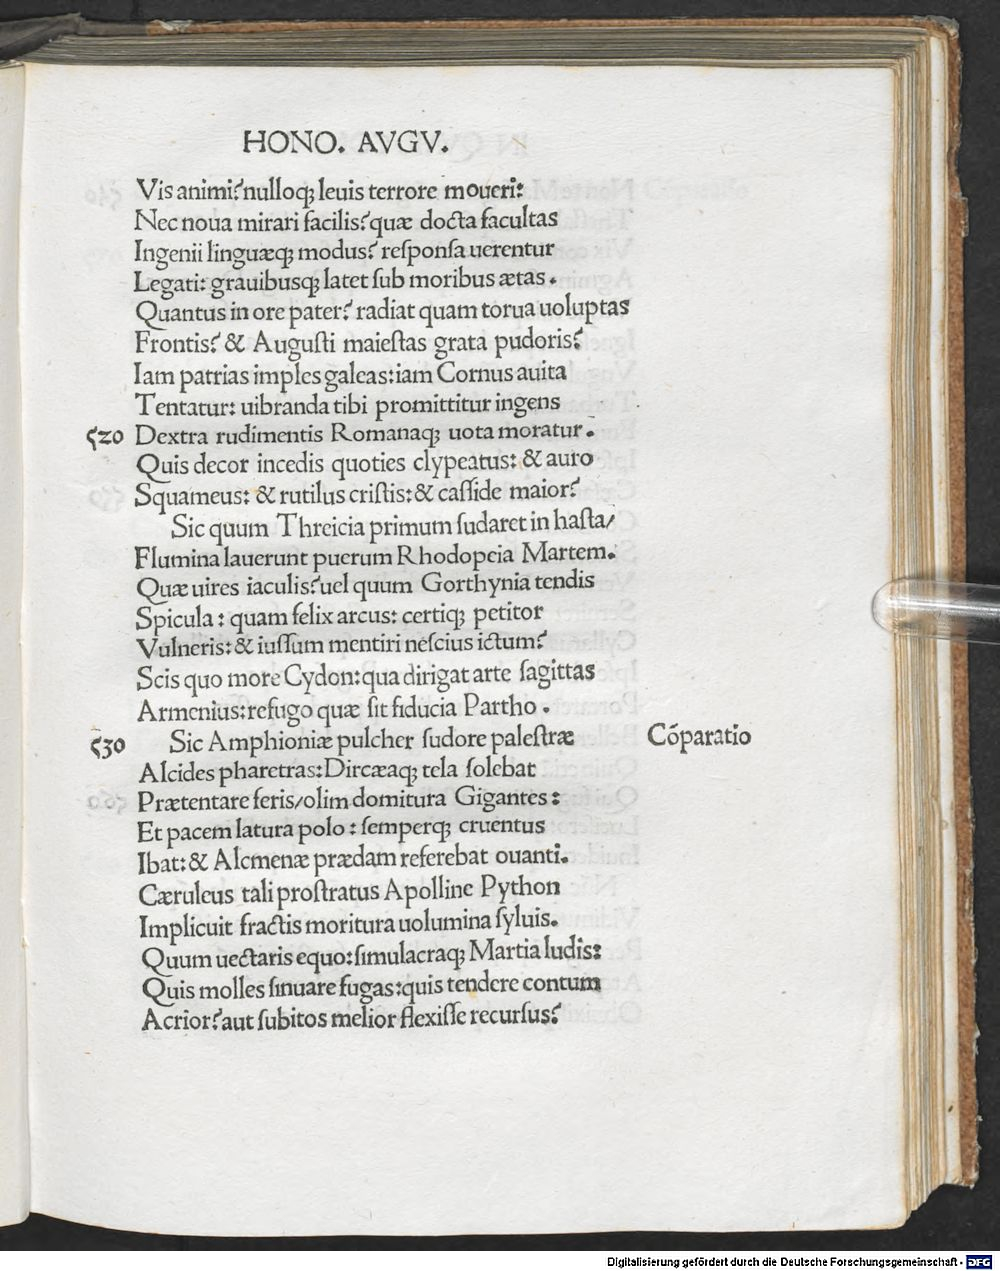 HONO. AVGV.
Vis animi? nulloq; leuis terrore moueri:
Nec noua mirari facilis? quæ docta facultas
Ingenii linguæq; modus? responſa uerentur
Legati: grauibusq; latet ſub moribus ætas.
Quantus in ore pater? radiat quam torua uoluptas
Frontis? & Auguſti maieſtas grata pudoris?
Iam patrias imples galeas: iam Cornus auita
Tentatur: uibranda tibi promittitur ingens
520 Dextra rudimentis Romanaq; uota moratur.
Quis decor incedis quoties clypeatus: & auro
Squameus: & rutilus criſtis: & caſſide maior?
Sic quum Threicia primum ſudaret in haſta/
Flumina lauerunt puerum Rhodopeia Martem.
Quæ uires iaculis? uel quum Gorthynia tendis
Spicula: quam felix arcus: certiq; petitor
Vulneris: & iuſſum mentiri neſcius ictum?
Scis quo more Cydon: qua dirigat arte ſagittas
Armenius: refugo quæ ſit fiducia Partho.
530 Sic Amphioniæ pulcher ſudore paleſtræ Cōparatio
Alcides pharetras: Dircæaq; tela ſolebat
Prætentare feris/ olim domitura Gigantes:
Et pacem latura polo: ſemperq; cruentus
Ibat: & Alcmenæ prædam referebat ouanti.
Cæruleus tali proſtratus Apolline Python
Implicuit fractis moritura uolumina ſyluis.
Quum uectaris equo: ſimulacraq; Martia ludis:
Quis molles ſinuare fugas: quis tendere contum
Acrior? aut ſubitos melior flexiſſe recurſus?
Digitalisierung gefördert durch die Deutsche Forschungsgemeinschaft - DFG